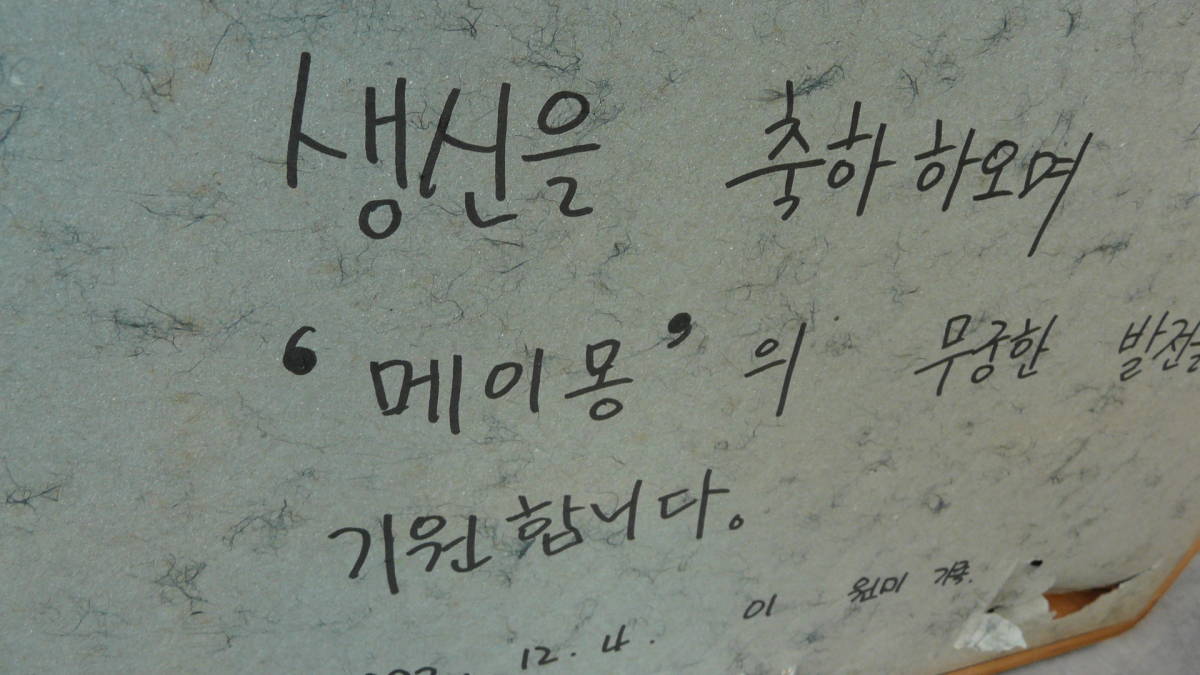 생신을 축하하오며
'메이몽'의 무궁한 발전을
기원합니다.
이 원미 가족.
12. 4.